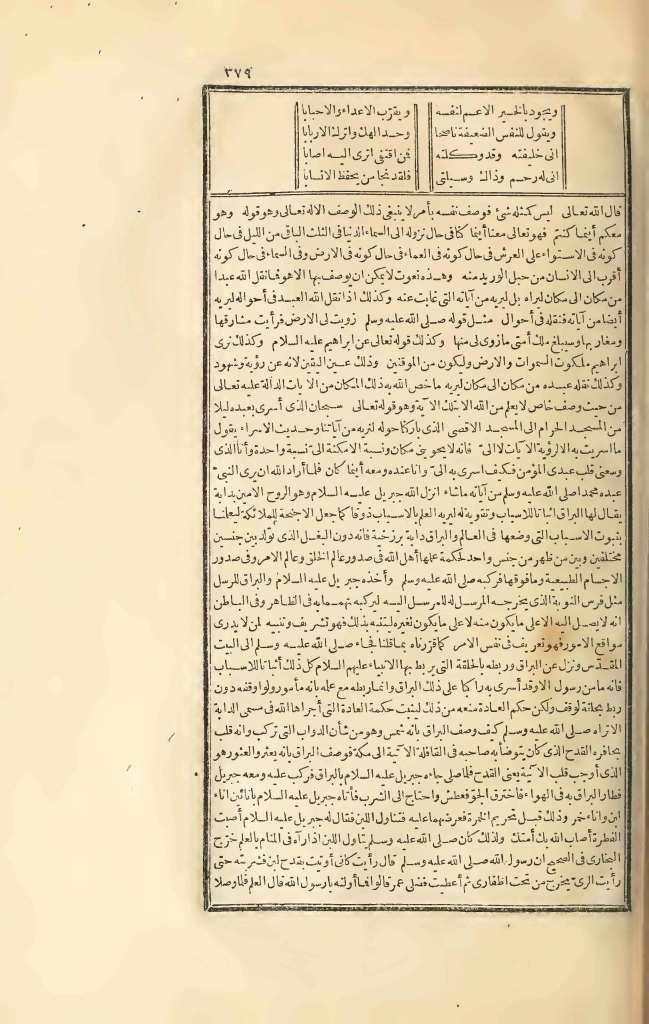 ٣٧٩
ويجود بالخير الاعم لنفسه ويقرّب الاعداء والاحبابا
ويقول للنفس الضعيفة ناصحا وحد الهك واترك الاربابا
انى خليفته وقد وكلته فمن اقتفى اثرى اليه اصابا
انى له رحم وذاك وسيلتى فلقد نجا من يحفظ الانسابا
قال الله تعالى ليس كمثله شئ فوصف نفسه بأمر لا ينبغى ذلك الوصف الا له تعالى وهو قوله وهو
معكم أينما كنتم فهو تعالى معنا أينما كنا فى حال نزوله الى السماء الدنيا فى الثلث الباقى من الليل فى حال
كونه فى الاستواء على العرش فى حال كونه فى العماء فى حال كونه فى الارض وفى السماء فى حال كونه
أقرب الى الانسان من حبل الوريد منه وهذه نعوت لا يمكن ان يوصف بها الا هو فما نقل الله عبدا
من مكان الى مكان ليراه بل ليريه من آياته التى غابت عنه وكذلك اذا نقل الله العبد فى أحواله ليريه
أيضا من آياته فنقله فى أحوال مثل قوله صلى الله عليه وسلم زويت لى الارض فرأيت مشارقها
ومغاربها وسيبلغ ملك أمتى ما زوى لى منها وكذلك قوله تعالى عن ابراهيم عليه السلام وكذلك نرى
ابراهيم ملكوت السموات والارض وليكون من الموقنين وذلك عين اليقين لانه عن رؤية وشهود
وكذلك نقله عبده من مكان الى مكان ليريه ما خص الله به ذلك المكان من الآيات الدالة عليه تعالى
من حيث وصف خاص لا يعلم من الله الا بتلك الآية وهو قوله تعالى سبحان الذى أسرى بعبده ليلا
من المسجد الحرام الى المسجد الاقصى الذى باركنا حوله لنريه من آياتنا وحديث الاسراء يقول
ما اسريت به الا لرؤية الآيات لا الىّ فانه لا يحوينى مكان ونسبة الامكنة الىّ نسبة واحدة وأنا الذى
وسعنى قلب عبدى المؤمن فكيف اسرى به الىّ وانا عنده ومعه أينما كان فلما أراد الله ان يرى النبى
عبده محمدا صلى الله عليه وسلم من آياته ما شاء انزل الله جبريل عليه السلام وهو الروح الامين بدابة
يقال لها البراق اثباتا للاسباب وتقوية له ليريه العلم بالاسباب ذوقا كما جعل الاجنحة للملائكة ليعلمنا
بثبوت الاسباب التى وضعها فى العالم والبراق دابة برزخية فانه دون البغل الذى تولد بين جنسين
مختلفين وبين من ظهر من جنس واحد لحكمة علمها أهل الله فى صدور عالم الخلق وعالم الامر وفى صدور
الاجسام الطبيعية وما فوقها فركبه صلى الله عليه وسلم وأخذه جبريل عليه السلام والبراق للرسل
مثل فرس النوبة الذى يخرجه المرسل له للمرسل اليه ليركبه تهمما به فى الظاهر وفى الباطن
انه لا يصل اليه الا على ما يكون منه لا على ما يكون لغيره ليتنبه بذلك فهو تشريف وتنبيه لمن لا يدرى
مواقع الامور فهو تعريف فى نفس الامر كما قررناه بما قلنا فجاء صلى الله عليه وسلم الى البيت
المقدس ونزل عن البراق وربطه بالحلقة التى يربط بها الانبياء عليهم السلام كل ذلك أثباتا للاسباب
فانه ما من رسول الا وقد أسرى به راكبا على ذلك البراق وانما ربطه مع علمه بانه مأمور ولو اوقفه دون
ربط بحلقة لوقف ولكن حكم العادة منعه من ذلك ليثبت حكمة العادة التى أجراها الله فى مسمى الدابة
الا تراه صلى الله عليه وسلم كيف وصف البراق بانه شمس وهو من شأن الدواب التى تركب وانه قلب
بحافره القدح الذى كان يتوضأ به صاحبه فى القافلة الآتية الى مكة فوصف البراق بانه يعثر والعثور هو
الذى أوجب قلب الآنية يعنى القدح فلما صلى جاءه جبريل عليه السلام بالبراق فركب عليه ومعه جبريل
فطار البراق به فى الهواء فاخترق الجوّ فعطش واحتاج الى الشرب فأتاه جبريل عليه السلام بانائين اناء
لبن واناء خمر وذلك قبل تحريم الخمرة فعرضهما عليه فتناول اللبن فقال له جبريل عليه السلام أصبت
الفطرة أصاب الله بك أمتك ولذلك كان صلى الله عليه وسلم يتأول اللبن اذا رآه فى المنام بالعلم خرج
البخارى فى الصحيح ان رسول الله صلى الله عليه وسلم قال رأيت كأنى أوتيت بقدح لبن فشربته حتى
رأيت الرىّ يخرج من تحت اظفارى ثم أعطيت فضلى عمر قالوا فما أولته يا رسول الله قال العلم فلما وصلا